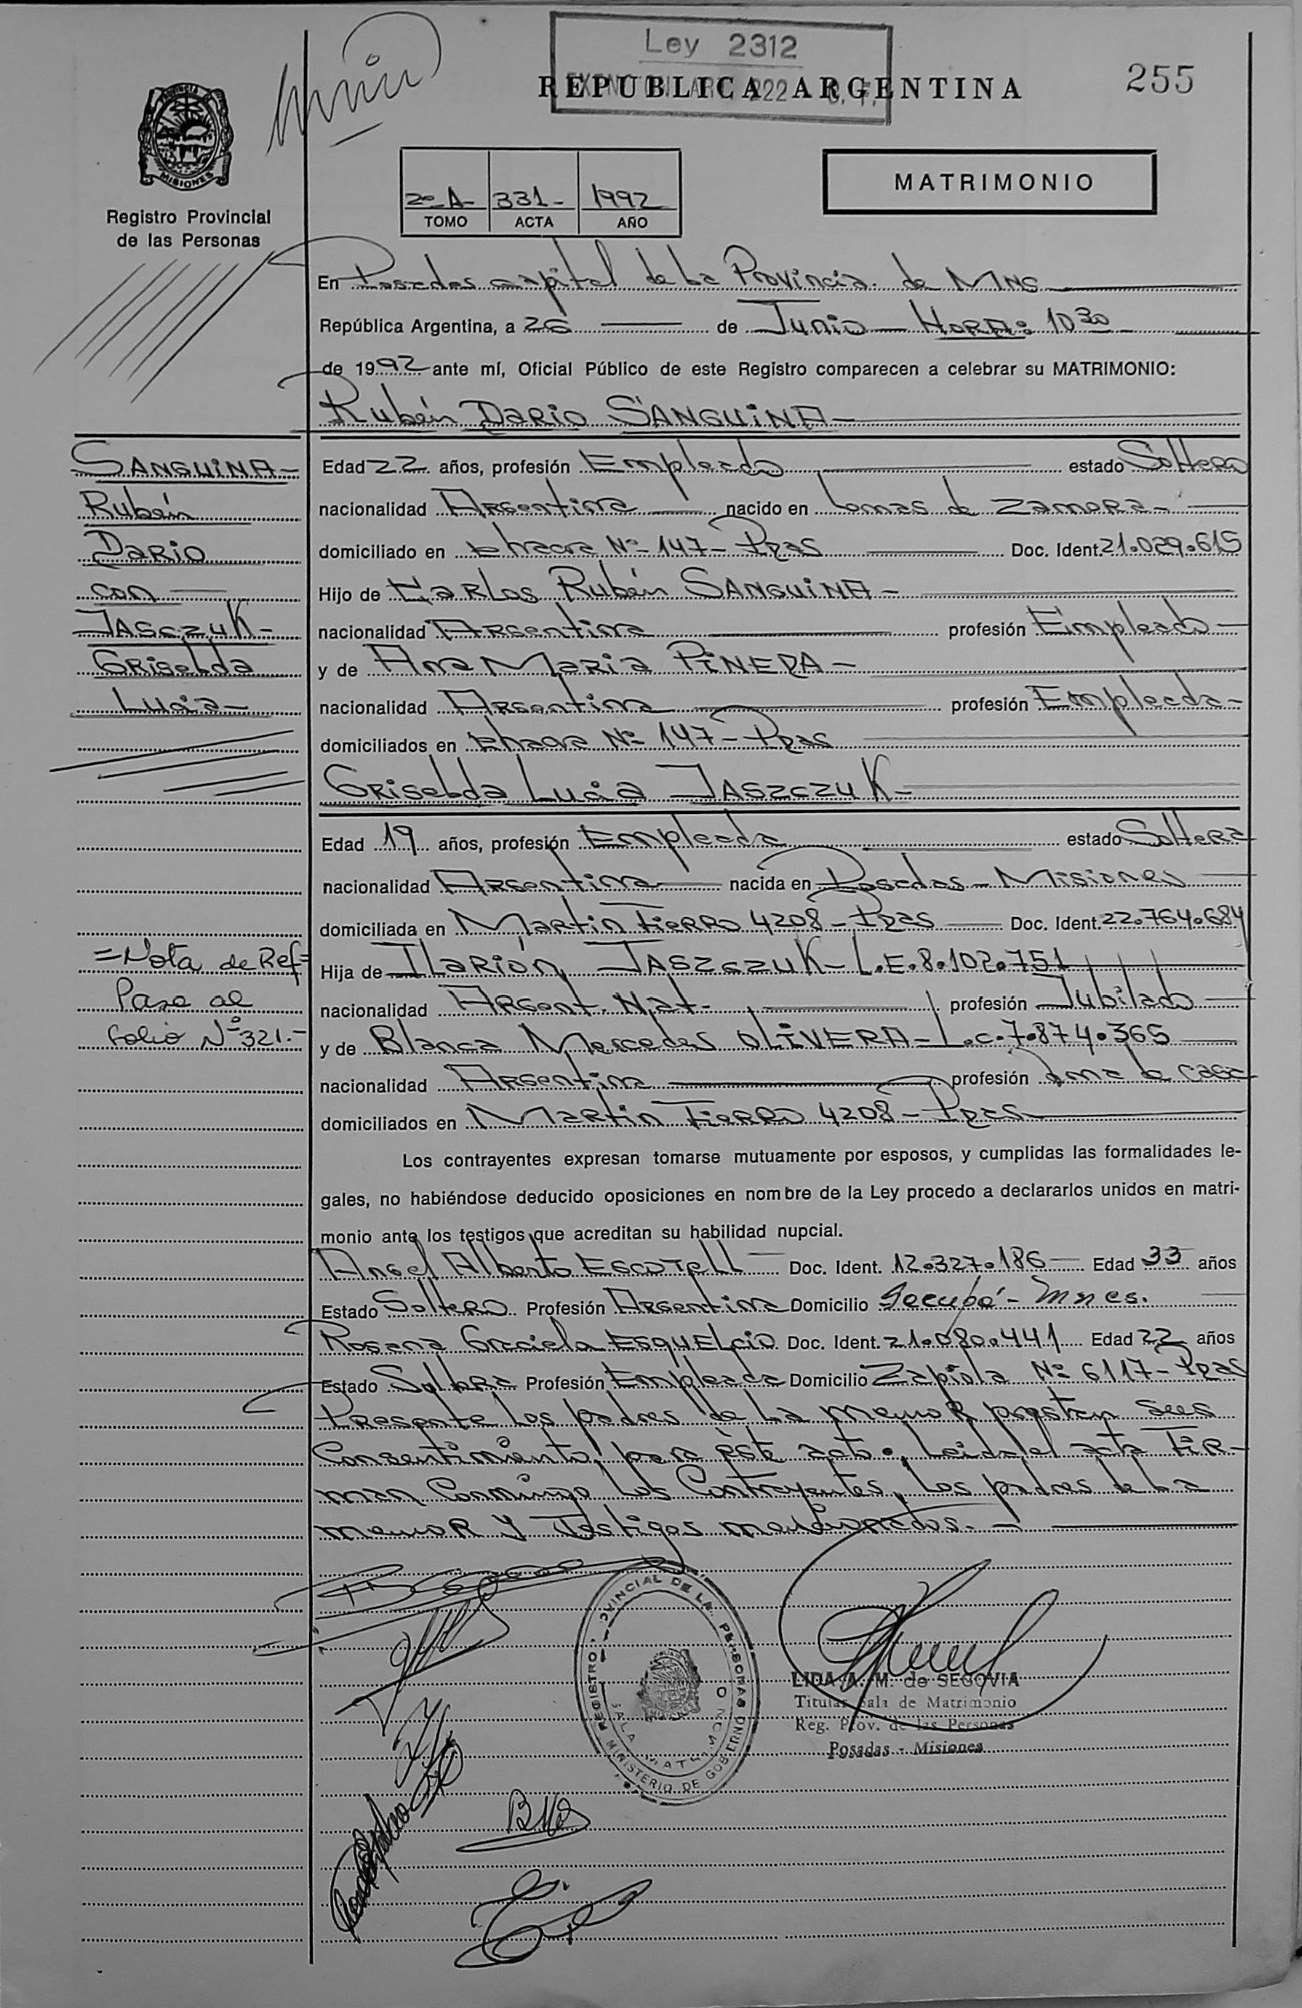 Ley 2312
REPUBLICA ARGENTINA
255
MISIONES
Registro Provincial
de las Personas
2º A- 331- 1992
TOMO ACTA AÑO
MATRIMONIO
En Posadas capital de La Provincia de Mns
República Argentina, a 26 de Junio Hora: 10 30
de 1992 ante mí, Oficial Público de este Registro comparecen a celebrar su MATRIMONIO:
Rubén Dario SANGUINA-
SANGUINA-
Rubén
Dario
con
JASZCZUK-
Griselda
Lucia-
Edad 22 años, profesión Empleado estado Soltero
nacionalidad Argentina nacido en Lomas de Zamora-
domiciliado en Chacra Nº 147- Pzas Doc. Ident 21.029.615
Hijo de Carlos Rubén SANGUINA-
nacionalidad Argentina profesión Empleado-
y de Ana Maria PINEDA-
nacionalidad Argentina profesión Empleada-
domiciliados en Chacra Nº 147- Pzas
Griselda Lucia JASZCZUK-
Edad 19 años, profesión Empleada estado Soltera
nacionalidad Argentina nacida en Posadas- Misiones
domiciliada en Martin Fierro 4208- Pzas Doc. Ident. 22.764.684
Hija de Ilarión JASZCZUK- L.E. 8.102.751
nacionalidad Argent. Nat. profesión Jubilado
y de Blanca Mercedes OLIVERA- L.C. 7.874.365
nacionalidad Argentina profesión Ama de casa
domiciliados en Martin Fierro 4208- Pzas
=Nota de Ref=
Pase al
folio Nº 321.-
Los contrayentes expresan tomarse mutuamente por esposos, y cumplidas las formalidades le-
gales, no habiéndose deducido oposiciones en nombre de la Ley procedo a declararlos unidos en matri-
monio ante los testigos que acreditan su habilidad nupcial.
Angel Alberto Doc. Ident. 12.327.186 Edad 33 años
Estado Soltero Profesión Argentina Domicilio
Rosana Graciela Doc. Ident. 21.080.441 Edad 22 años
Estado Soltera Profesión Empleada Domicilio Zapiola Nº 6117- Pzas
Presente los padres de La menor prestan sus
Consentimiento para éste acto. Leida el acta Fir-
man Conmigo los Contrayentes, los padres de La
menor y Testigos mencionados.-
REGISTRO PROVINCIAL DE LAS PERSONAS
SALA MATRIMONIO
MINISTERIO DE GOBIERNO
LIDA A. M. de SEGOVIA
Titular Sala de Matrimonio
Reg. Prov. de las Personas
Posadas - Misiones